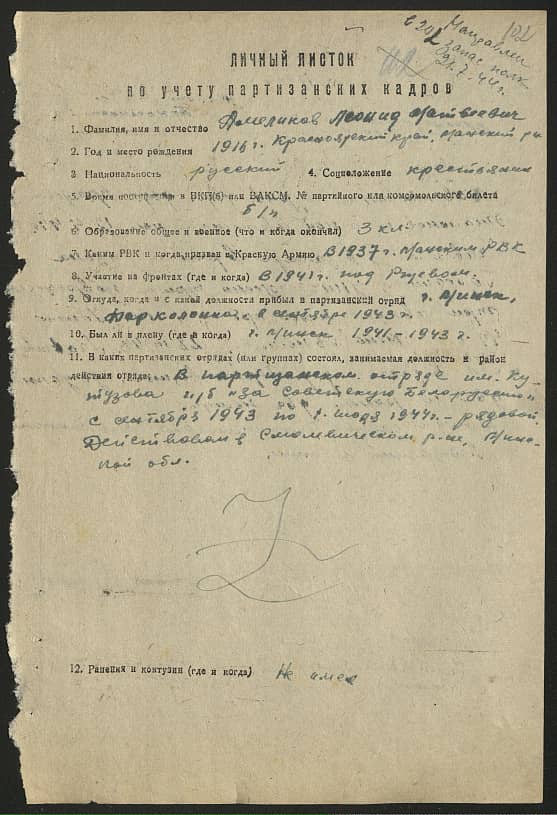 Направлен 102
с 20/2 запас. полк
21.7.44 г.
ЛИЧНЫЙ ЛИСТОК
по учету партизанских кадров
1. Фамилия, имя и отчество Амеликов Леонид Матвеевич
2. Год и место рождения 1916 г. Красноярский край, Манский р-н
3 Национальность русский 4. Соцположение крестьянин
5. Время поступления в ВКП(б) или ВЛКСМ. № партийного или комсомольского билета
б/п
6 Образование общее и военное (что и когда окончил) 3 кл.
7. Каким РВК и когда призван в Красную Армию В 1937 г. Манским РВК
8. Участие на фронтах (где и когда) В 1941 г. под Ржевом.
9. Откуда, когда и с какой должности прибыл в партизанский отряд г. Минск,
в сентябре 1943 г.
10. Был ли в плену (где и когда) г. Минск 1941-1943 г.
11. В каких партизанских отрядах (или группах) состоял, занимаемая должность и район
действия отряда: В партизанском отряде им. Ку-
тузова п/б "за Советскую Белоруссию"
с сентября 1943 по 1 июля 1944 г. - рядовой.
Действовал в Смолевическом р-не, Минс-
кой обл.
12. Ранения и контузии (где и когда) Не имел